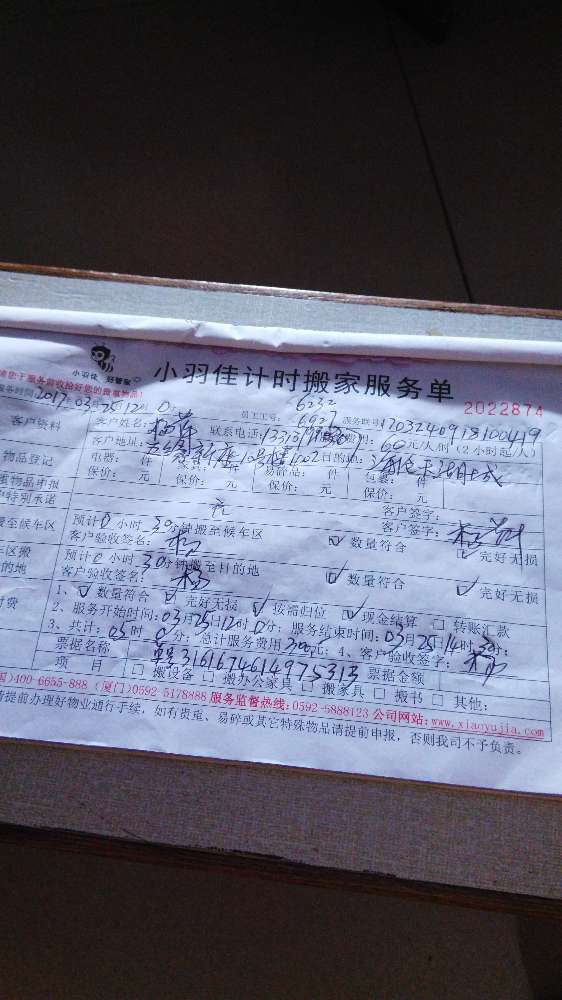 小羽佳 好管家
小羽佳计时搬家服务单
2022874
请您于服务前收拾好您的贵重物品!
服务时间:2017年03月25日12时0分
员工工号: 6232 6627 服务联号:1703240918100419
客户资料 客户姓名: 联系电话: 60元/人/时(2小时起/人)
客户地址: 10号楼1002 目的地:
物品登记 电器: 件 家具: 件 易碎品: 件 包裹: 件
重物品申报 保价: 元 保价: 元 保价: 元 保价: 元
特别承诺 元 客户签字:
搬至候车区 预计0小时30分钟搬至候车区 客户签字:
客户验收签名: ☑ 数量符合 ☑ 完好无损
车区搬 预计0小时30分钟搬至目的地
的地 客户验收签名: ☑ 数量符合 ☑ 完好无损
1、☑ 数量符合 ☑ 完好无损 ☑ 按需归位 ☑ 现金结算 □ 转账汇款
付费 2、服务开始时间:03月25日12时0分;服务结束时间:03月25日14时30分;
3、共计:03时0分;总计服务费用300元;4、客户验收签字:
票据名称 3161674614975313 票据金额
项 目 □ 搬设备 □ 搬办公家具 □ 搬家具 □ 搬书 □ 其他:
400-6655-888 (厦门)0592-5178888 服务监督热线:0592-5888123 公司网站:www.xiaoyujia.com
请提前办理好物业通行手续,如有贵重、易碎或其它特殊物品请提前申报,否则我司不予负责。